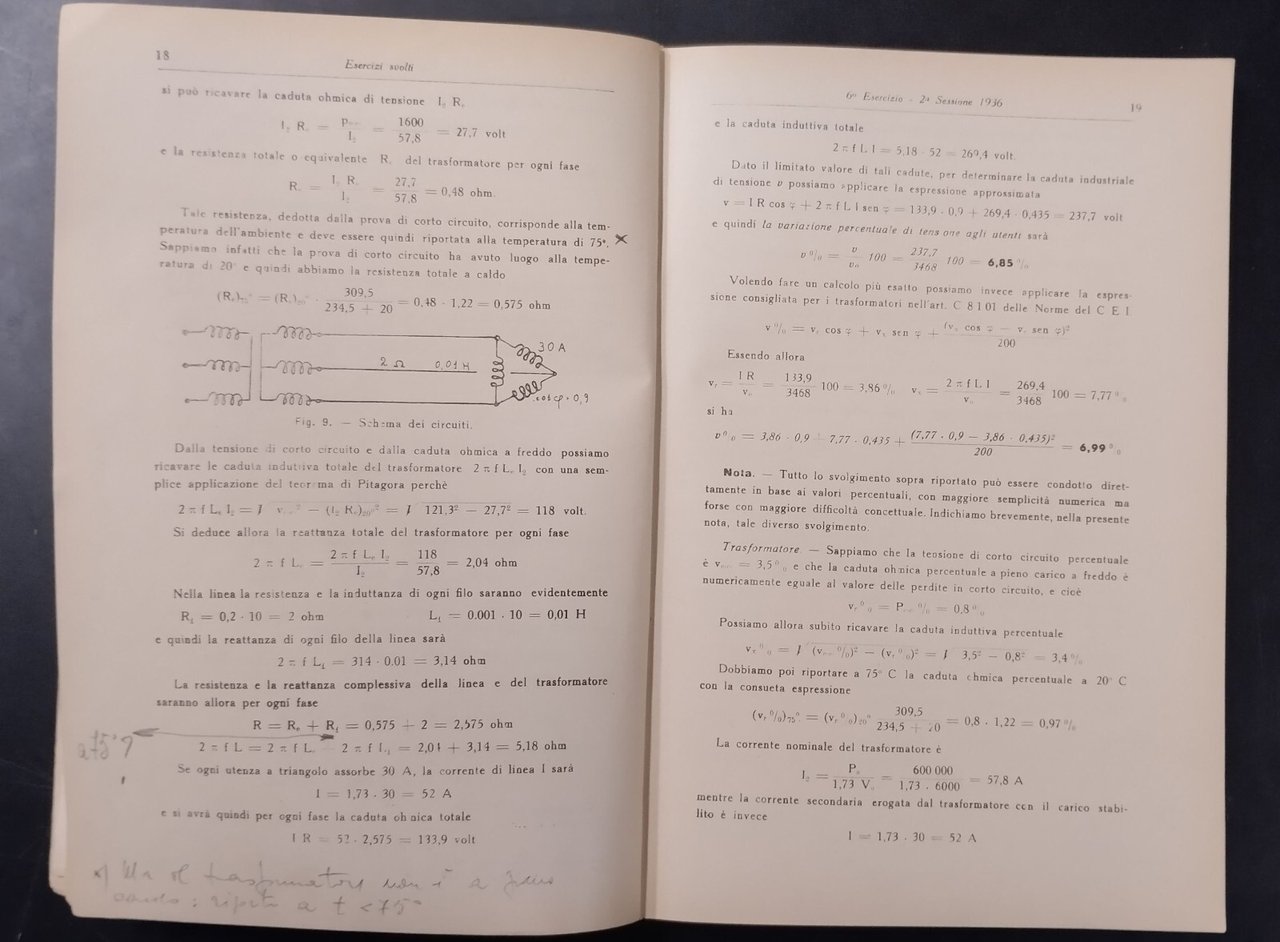 18
Esercizi svolti
si può ricavare la caduta ohmica di tensione I₂ Rₑ
I₂ Rₑ = P / I₂ = 1600 / 57,8 = 27,7 volt
e la resistenza totale o equivalente Rₑ del trasformatore per ogni fase
Rₑ = I₂ Rₑ / I₂ = 27,7 / 57,8 = 0,48 ohm.
Tale resistenza, dedotta dalla prova di corto circuito, corrisponde alla tem-
peratura dell'ambiente e deve essere quindi riportata alla temperatura di 75°.
Sappiamo infatti che la prova di corto circuito ha avuto luogo alla tempe-
ratura di 20° e quindi abbiamo la resistenza totale a caldo
(Rₑ)₇₅° = (Rₑ)₂₀° · 309,5 / 234,5 + 20 = 0,48 · 1,22 = 0,575 ohm
30 A
2 Ω 0,01 H
cos φ = 0,9
Fig. 9. — Schema dei circuiti.
Dalla tensione di corto circuito e dalla caduta ohmica a freddo possiamo
ricavare le caduta induttiva totale del trasformatore 2 π f Lₑ I₂ con una sem-
plice applicazione del teorema di Pitagora perchè
2 π f Lₑ I₂ = √ v² − (I₂ Rₑ)₂₀°² = √ 121,3² − 27,7² = 118 volt.
Si deduce allora la reattanza totale del trasformatore per ogni fase
2 π f Lₑ = 2 π f Lₑ I₂ / I₂ = 118 / 57,8 = 2,04 ohm
Nella linea la resistenza e la induttanza di ogni filo saranno evidentemente
R₁ = 0,2 · 10 = 2 ohm L₁ = 0.001 . 10 = 0,01 H
e quindi la reattanza di ogni filo della linea sarà
2 π f L₁ = 314 · 0.01 = 3,14 ohm
La resistenza e la reattanza complessiva della linea e del trasformatore
saranno allora per ogni fase
R = Rₑ + R₁ = 0,575 + 2 = 2,575 ohm
a 75° ?
2 π f L = 2 π f Lₑ 2 π f L₁ = 2,04 + 3,14 = 5,18 ohm
Se ogni utenza a triangolo assorbe 30 A, la corrente di linea I sarà
I = 1,73 · 30 = 52 A
e si avrà quindi per ogni fase la caduta ohmica totale
I R = 52 · 2,575 = 133,9 volt
Ma il trasformatore non è a pieno
carico : a t < 75°
6º Esercizio - 2ª Sessione 1936
19
e la caduta induttiva totale
2 π f L I = 5,18 · 52 = 269,4 volt.
Dato il limitato valore di tali cadute, per determinare la caduta industriale
di tensione v possiamo applicare la espressione approssimata
v = I R cos φ + 2 π f L I sen φ = 133,9 · 0,9 + 269,4 · 0,435 = 237,7 volt
e quindi la variazione percentuale di tensione agli utenti sarà
v % = v / v₀ 100 = 237,7 / 3468 100 = 6,85 %
Volendo fare un calcolo più esatto possiamo invece applicare la espres-
sione consigliata per i trasformatori nell'art. C 8 1 01 delle Norme del C E I.
v % = vᵣ cos φ + vₓ sen φ + (vₓ cos φ − vᵣ sen φ)² / 200
Essendo allora
vᵣ = I R / v₀ = 133,9 / 3468 100 = 3,86 % vₓ = 2 π f L I / v₀ = 269,4 / 3468 100 = 7,77 %
si ha
v % = 3,86 · 0,9 + 7,77 · 0,435 + (7,77 · 0,9 − 3,86 · 0,435)² / 200 = 6,99 %
Nota. — Tutto lo svolgimento sopra riportato può essere condotto diret-
tamente in base ai valori percentuali, con maggiore semplicità numerica ma
forse con maggiore difficoltà concettuale. Indichiamo brevemente, nella presente
nota, tale diverso svolgimento.
Trasformatore. — Sappiamo che la tensione di corto circuito percentuale
è v = 3,5 % e che la caduta ohmica percentuale a pieno carico a freddo è
numericamente eguale al valore delle perdite in corto circuito, e cioè
vᵣ % = P % = 0,8 %
Possiamo allora subito ricavare la caduta induttiva percentuale
vₓ % = √ (v %)² − (vᵣ %)² = √ 3,5² − 0,8² = 3,4 %
Dobbiamo poi riportare a 75° C la caduta ohmica percentuale a 20° C
con la consueta espressione
(vᵣ %)₇₅° = (vᵣ %)₂₀° 309,5 / 234,5 + 20 = 0,8 · 1,22 = 0,97 %
La corrente nominale del trasformatore è
I₂ = Pₙ / 1,73 V₀ = 600 000 / 1,73 · 6000 = 57,8 A
mentre la corrente secondaria erogata dal trasformatore con il carico stabi-
lito è invece
I = 1,73 · 30 = 52 A